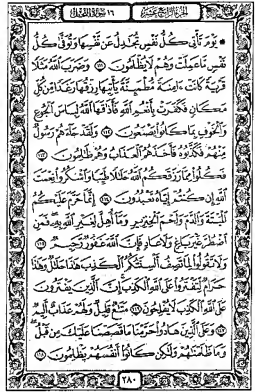 الجزء الرابع عشر ١٦ سورة النحل
۞ يَوْمَ تَأْتِي كُلُّ نَفْسٍ تُجَٰدِلُ عَن نَّفْسِهَا وَتُوَفَّىٰ كُلُّ
نَفْسٍ مَّا عَمِلَتْ وَهُمْ لَا يُظْلَمُونَ ١١١ وَضَرَبَ ٱللَّهُ مَثَلًا
قَرْيَةً كَانَتْ ءَامِنَةً مُّطْمَئِنَّةً يَأْتِيهَا رِزْقُهَا رَغَدًا مِّن كُلِّ
مَكَانٍ فَكَفَرَتْ بِأَنْعُمِ ٱللَّهِ فَأَذَٰقَهَا ٱللَّهُ لِبَاسَ ٱلْجُوعِ
وَٱلْخَوْفِ بِمَا كَانُوا۟ يَصْنَعُونَ ١١٢ وَلَقَدْ جَآءَهُمْ رَسُولٌ
مِّنْهُمْ فَكَذَّبُوهُ فَأَخَذَهُمُ ٱلْعَذَابُ وَهُمْ ظَٰلِمُونَ ١١٣
فَكُلُوا۟ مِمَّا رَزَقَكُمُ ٱللَّهُ حَلَٰلًا طَيِّبًا وَٱشْكُرُوا۟ نِعْمَتَ
ٱللَّهِ إِن كُنتُمْ إِيَّاهُ تَعْبُدُونَ ١١٤ إِنَّمَا حَرَّمَ عَلَيْكُمُ
ٱلْمَيْتَةَ وَٱلدَّمَ وَلَحْمَ ٱلْخِنزِيرِ وَمَآ أُهِلَّ لِغَيْرِ ٱللَّهِ بِهِۦ فَمَنِ
ٱضْطُرَّ غَيْرَ بَاغٍ وَلَا عَادٍ فَإِنَّ ٱللَّهَ غَفُورٌ رَّحِيمٌ ١١٥
وَلَا تَقُولُوا۟ لِمَا تَصِفُ أَلْسِنَتُكُمُ ٱلْكَذِبَ هَٰذَا حَلَٰلٌ وَهَٰذَا
حَرَامٌ لِّتَفْتَرُوا۟ عَلَى ٱللَّهِ ٱلْكَذِبَ إِنَّ ٱلَّذِينَ يَفْتَرُونَ
عَلَى ٱللَّهِ ٱلْكَذِبَ لَا يُفْلِحُونَ ١١٦ مَتَٰعٌ قَلِيلٌ وَلَهُمْ عَذَابٌ أَلِيمٌ
١١٧ وَعَلَى ٱلَّذِينَ هَادُوا۟ حَرَّمْنَا مَا قَصَصْنَا عَلَيْكَ مِن قَبْلُ
وَمَا ظَلَمْنَٰهُمْ وَلَٰكِن كَانُوٓا۟ أَنفُسَهُمْ يَظْلِمُونَ ١١٨
٢٨٠